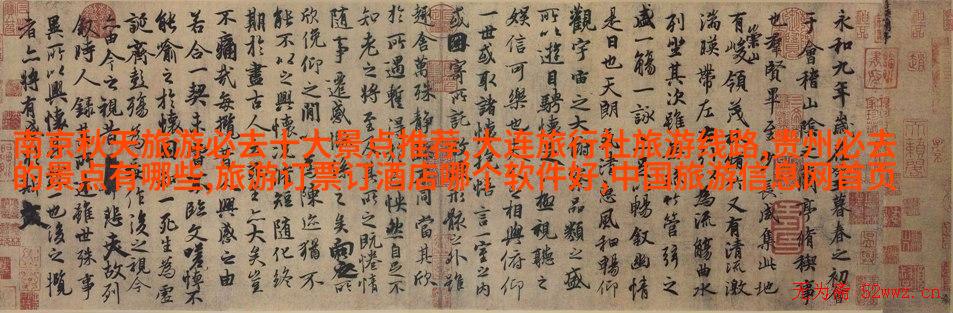 南京秋天旅游必去十大景点推荐,大连旅行社旅游线路,贵州必去
的景点有哪些,旅游订票订酒店哪个软件好,中国旅游信息网首页
永和九年歲在癸丑暮春之初會
于會稽山陰之蘭亭脩禊事
也群賢畢至少長咸集此地
有崇山峻領茂林脩竹又有清流激
湍暎帶左右引以為流觴曲水
列坐其次雖無絲竹管弦之
盛一觴一詠亦足以暢敘幽情
是日也天朗氣清惠風和暢仰
觀宇宙之大俯察品類之盛
所以遊目騁懷足以極視聽之
娛信可樂也夫人之相與俯仰
一世或取諸懷抱悟言一室之內
或因寄所託放浪形骸之外雖
趣舍萬殊靜躁不同當其欣
於所遇暫得於己怏然自足不
知老之將至及其所之既惓情
隨事遷感慨係之矣向之所
欣俛仰之閒以為陳迹猶不
能不以之興懷況脩短隨化終
期於盡古人云死生亦大矣豈
不痛哉每攬昔人興感之由
若合一契未嘗不臨文嗟悼不
能喻之於懷固知一死生為虛
誕齊彭殤為妄作後之視今
亦由今之視昔悲夫故列
敘時人錄其所述雖世殊事
異所以興懷其致一也後之攬
者亦將有感於斯文
无为斋 52wwz.cn